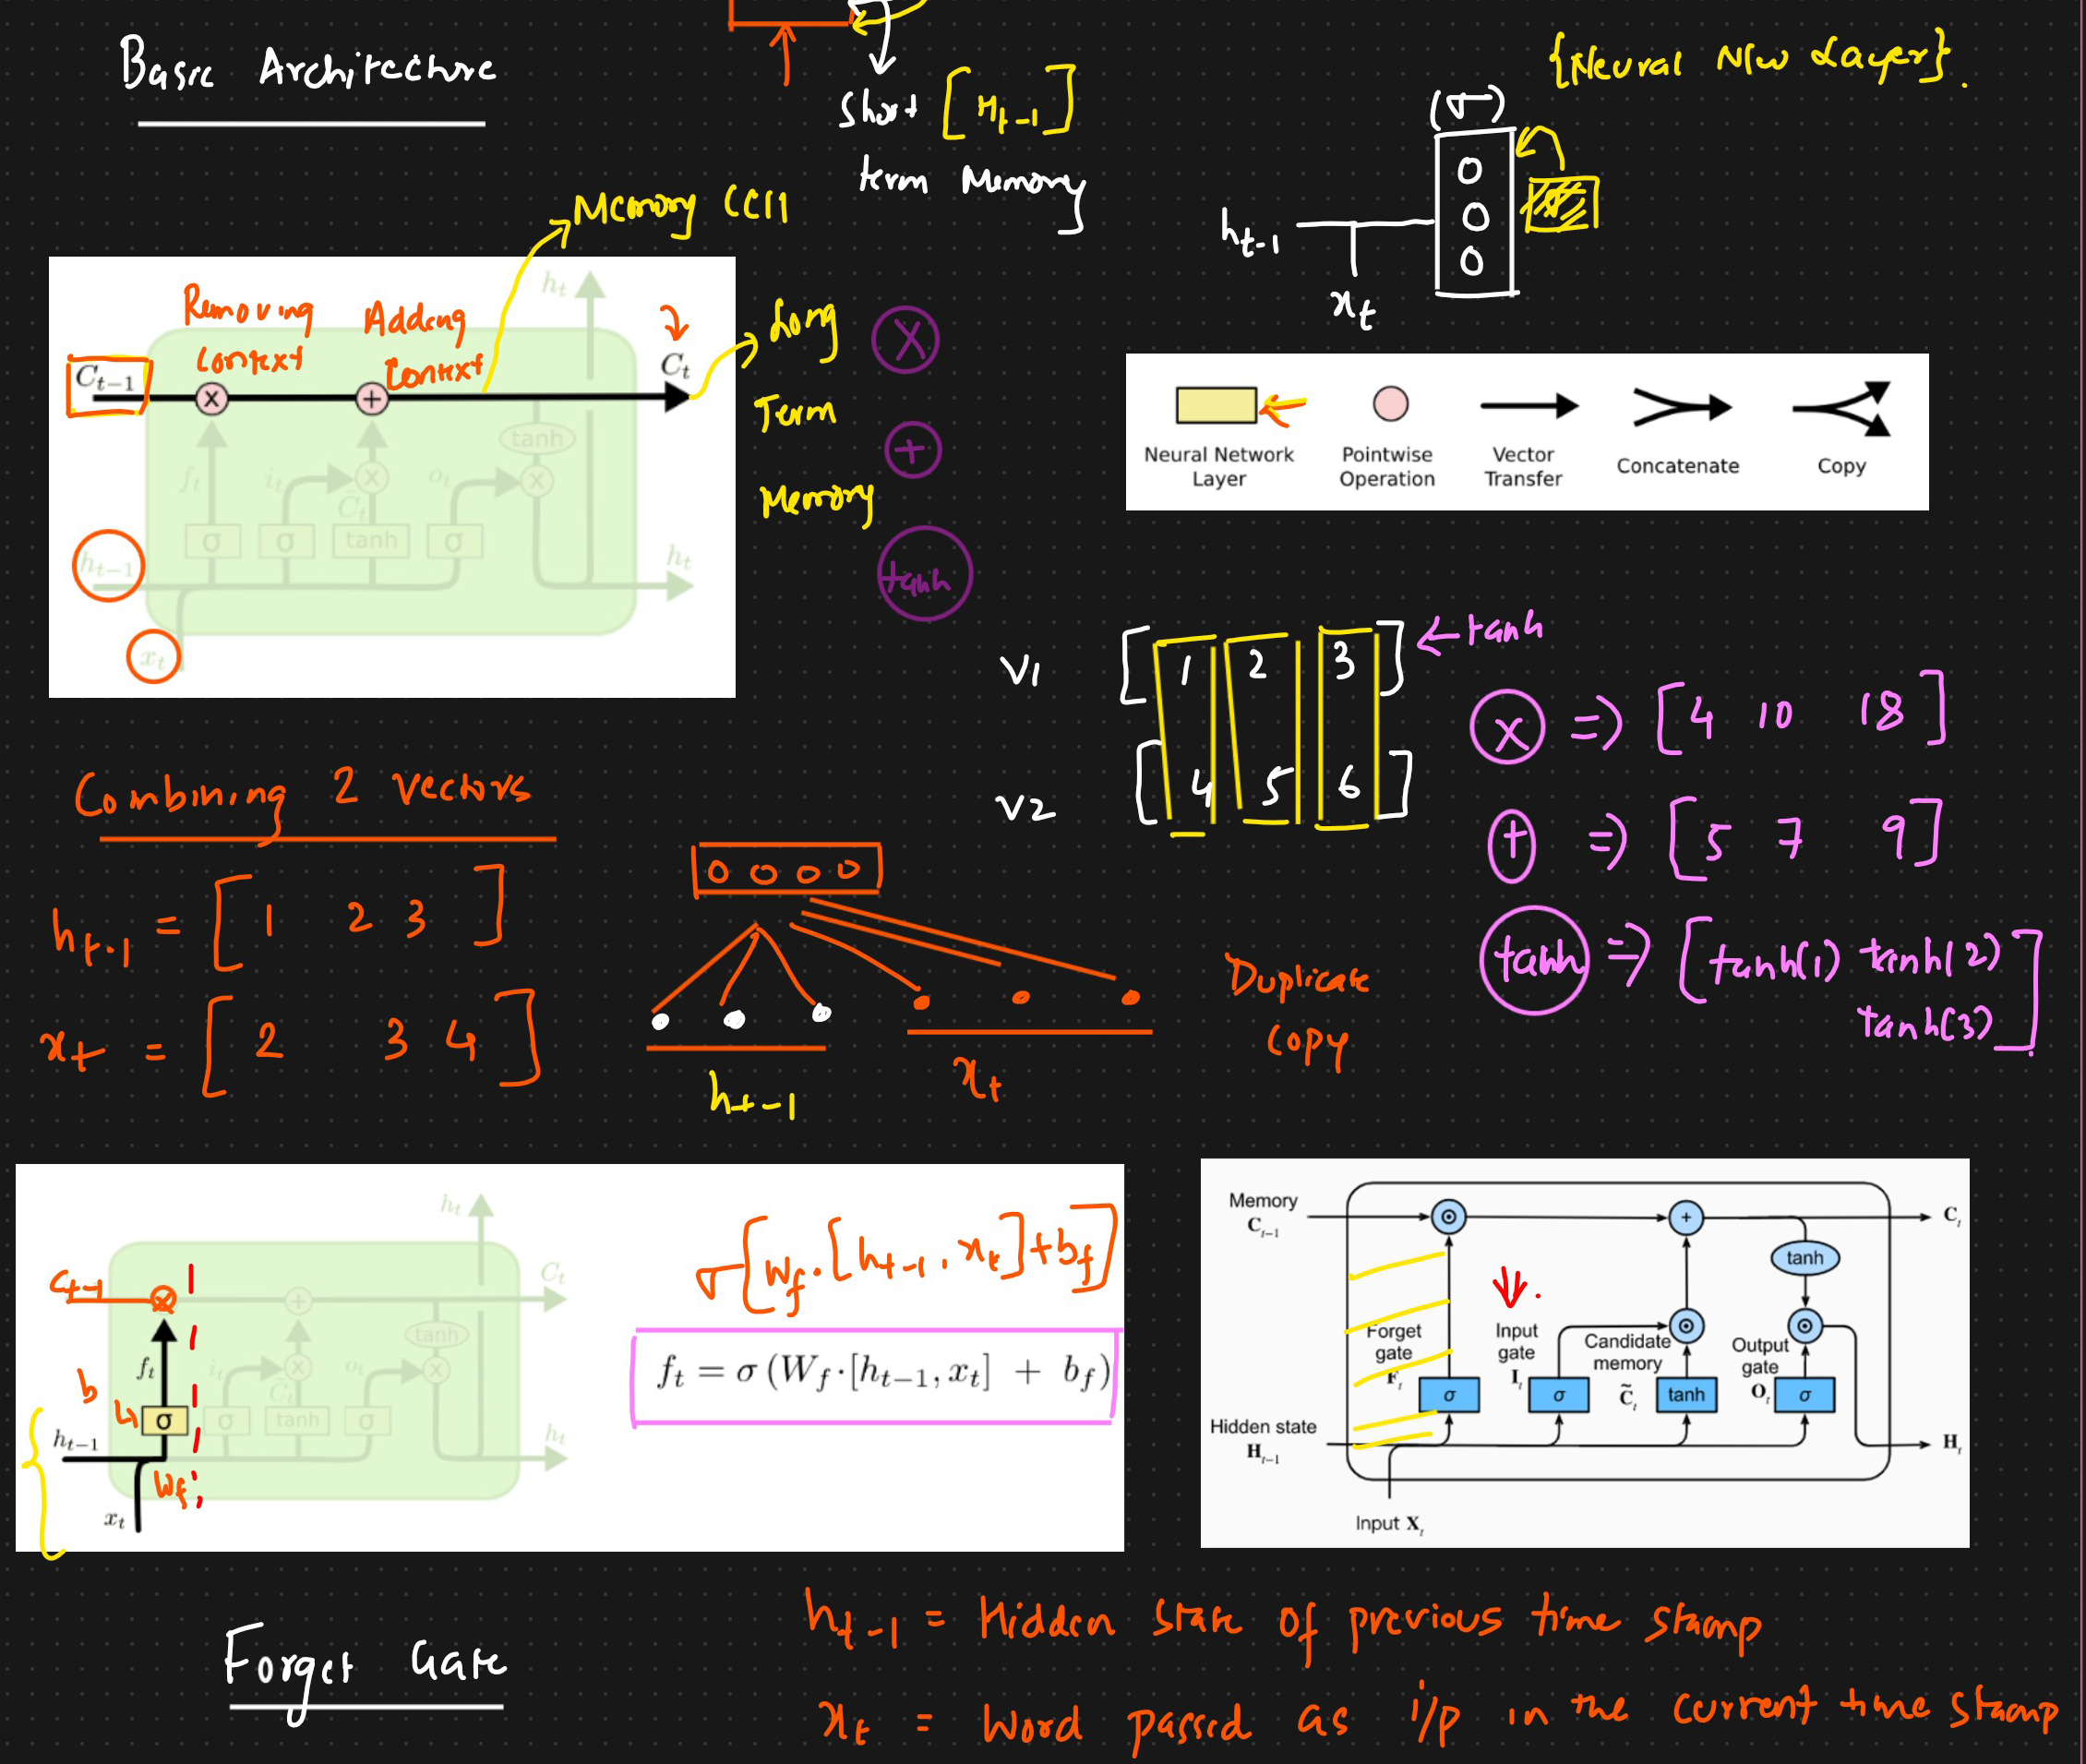 Basic Architecture
Short [H_{t-1}]
term Memory
{Neural N/w Layer}.
(σ)
h_{t-1}
x_t
Memory Cell
Removing
Context
Adding
Context
h_t
C_{t-1}
C_t
x
+
tanh
f_t
i_t
x
C̃_t
o_t
x
σ
σ
tanh
σ
h_{t-1}
h_t
x_t
Long
Term
Memory
x
+
tanh
Neural Network
Layer
Pointwise
Operation
Vector
Transfer
Concatenate
Copy
V1 [ 1 2 3 ] ← tanh
V2 [ 4 5 6 ]
x => [ 4 10 18 ]
+ => [ 5 7 9 ]
tanh => [ tanh(1) tanh(2)
tanh(3) ]
Combining 2 vectors
h_{t-1} = [ 1 2 3 ]
x_t = [ 2 3 4 ]
h_{t-1}
x_t
Duplicate
Copy
C_{t-1}
x
+
h_t
C_t
tanh
f_t
i_t
x
C̃_t
o_t
x
b
σ
σ
tanh
σ
h_{t-1}
h_t
W_f
x_t
σ[W_f · [h_{t-1}, x_t] + b_f]
f_t = σ (W_f · [h_{t-1}, x_t] + b_f)
Memory
C_{t-1}
+
C_t
tanh
Forget
gate
F_t
Input
gate
I_t
Candidate
memory
C̃_t
Output
gate
O_t
σ
σ
tanh
σ
Hidden state
H_{t-1}
H_t
Input X_t
Forget Gate
h_{t-1} = Hidden state of previous time stamp
x_t = Word passed as i/p in the current time stamp